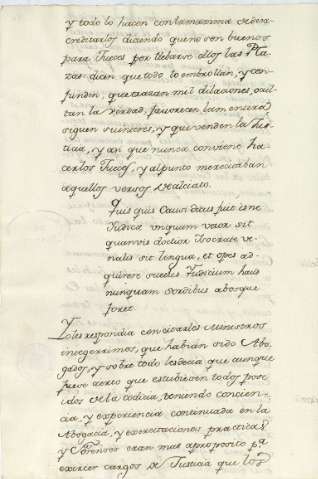 y todo lo hacen con la misma e des
creditarlos diciendo que no son buenos
para Jueces por llebarse ellos las Pla
zas: dicen que todo lo embrollan, y con
funden, que trazan mil dilaciones, ocul
tan la verdad, favorecen la mentira
siguen su interes, y que venden la Jus
ticia, y asi que nunca conviene ha
cerlos Jueces, y al punto mencionaban
aquellos versos de Alciato.
Quis quis Causidicus fuit is ne
Judica unquam uxor sit
quamvis doctior Isocrate ve
nalis sit lengua, et opes ad
quirere suetus Judicium haus
nunquam sordibus absque
foret
Yo les respondia con citarles Ministros
integerrimos, que habian sido Abo
gados, y sobre todo les decia que aunque
fuese cierto que estubiesen todos posei
dos de la codicia, teniendo concien
cia, y experiencia continuada en la
Abogacia, y exercitaciones practicas
y Forenses eran mas aproposito pa
exercer cargos de Justicia que los